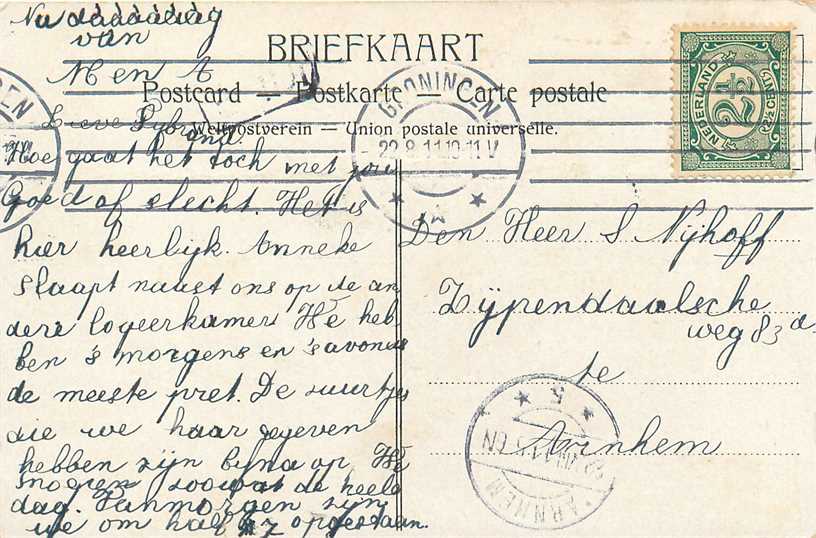 Nu dáááááág
van
M en A
BRIEFKAART
Postcard — Postkarte — Carte postale
Weltpostverein — Union postale universelle.
GRONINGEN
22.8.11.10-11V
NEDERLAND
2½
2½ CENT
Lieve Sybrand.
Hoe gaat het toch met jou
Goed of slecht. Het is
hier heerlijk. Anneke
slaapt naast ons op de an
dere logeerkamer. We heb
ben 's morgens en 's avonds
de meeste pret. De zuurtjes
die we haar gegeven
hebben zijn byna op. We
mogen zoowat de heele
dag. Vanmorgen zijn
we om half 7 opgestaan.
Den Heer S Nijhoff
Zijpendaalsche
weg 83 a.
te
Arnhem
ARNHEM
5